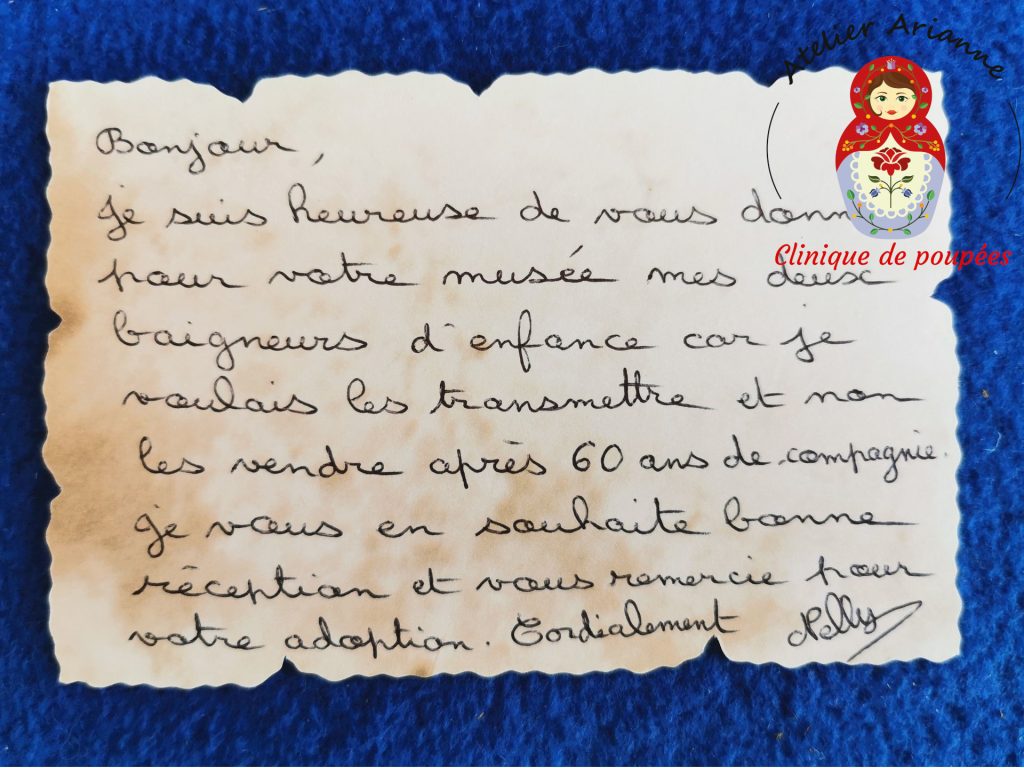 Atelier Arianne
Clinique de poupées
Bonjour,
Je suis heureuse de vous donn
pour votre musée mes deux
baigneurs d'enfance car je
voulais les transmettre et non
les vendre après 60 ans de compagnie.
Je vous en souhaite bonne
réception et vous remercie pour
votre adoption. Cordialement Nelly